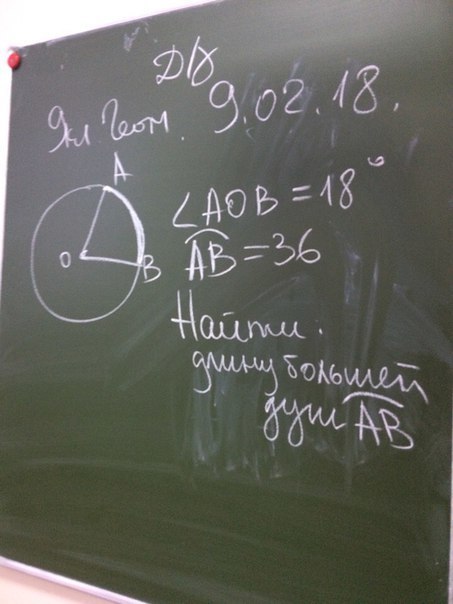 Д/З
9кл. Геом. 9.02.18.
A
O
B
∠AOB = 18°
AB = 36
Найти:
длину большей
дуги AB